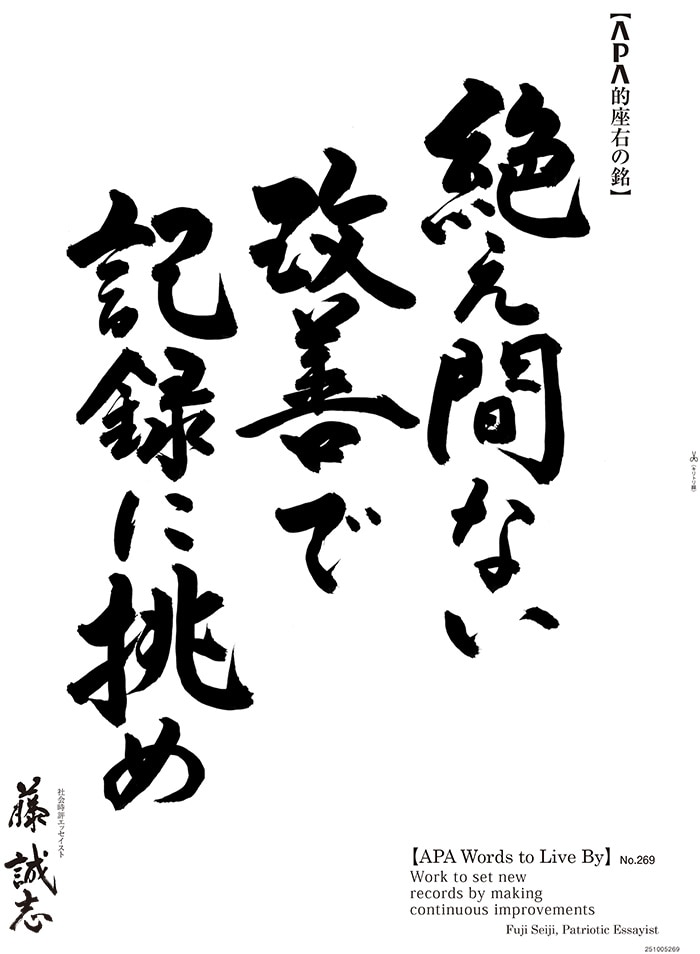 【APA的座右の銘】
絶え間ない
改善で
記録に挑め
社会時評エッセイスト
藤誠志
(キリトリ線)
【APA Words to Live By】 No.269
Work to set new
records by making
continuous improvements
Fuji Seiji, Patriotic Essayist
251005269